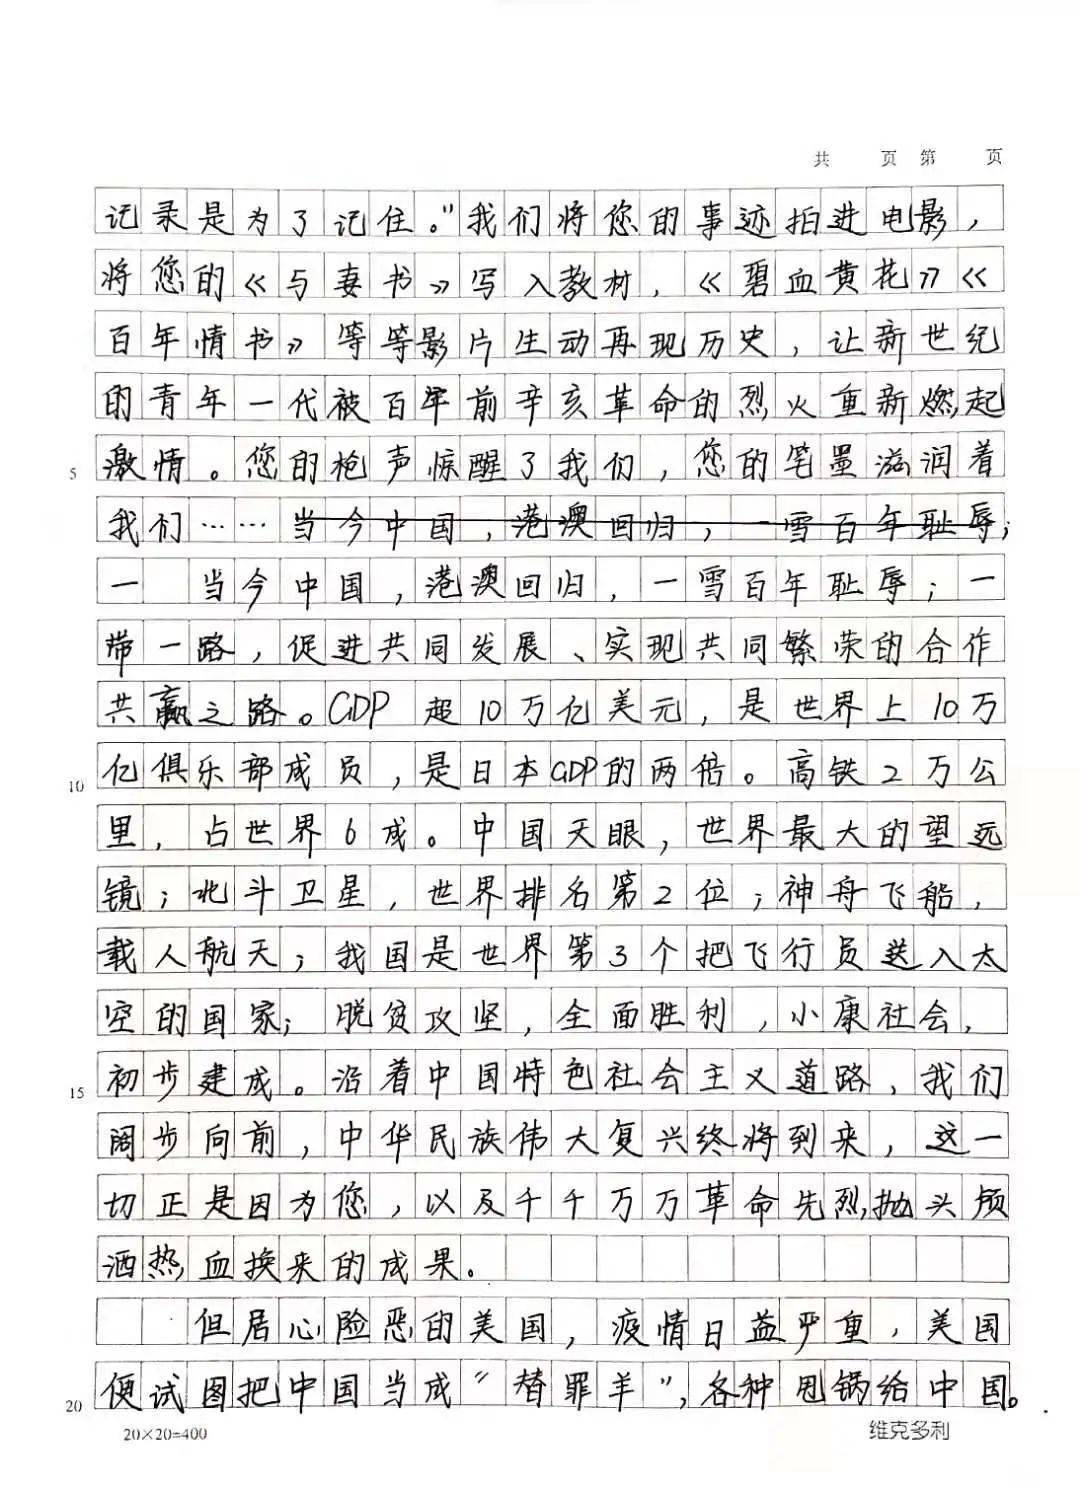 共 页 第 页
记录是为了记住。"我们将您的事迹拍进电影，
将您的《与妻书》写入教材，《碧血黄花》《
百年情书》等等影片生动再现历史，让新世纪
的青年一代被百年前辛亥革命的烈火重新燃起
5 激情。您的枪声惊醒了我们，您的笔墨滋润着
我们……当今中国，港澳回归，一雪百年耻辱；
一 当今中国，港澳回归，一雪百年耻辱；一
带一路，促进共同发展、实现共同繁荣的合作
共赢之路。GDP 超10万亿美元，是世界上10万
10 亿俱乐部成员，是日本GDP的两倍。高铁2万公
里，占世界6成。中国天眼，世界最大的望远
镜；北斗卫星，世界排名第2位；神舟飞船，
载人航天；我国是世界第3个把飞行员送入太
空的国家；脱贫攻坚，全面胜利，小康社会，
15 初步建成。沿着中国特色社会主义道路，我们
阔步向前，中华民族伟大复兴终将到来，这一
切正是因为您，以及千千万万革命先烈抛头颅
洒热血换来的成果。
但居心险恶的美国，疫情日益严重，美国
20 便试图把中国当成"替罪羊"，各种甩锅给中国。
20×20=400 维克多利